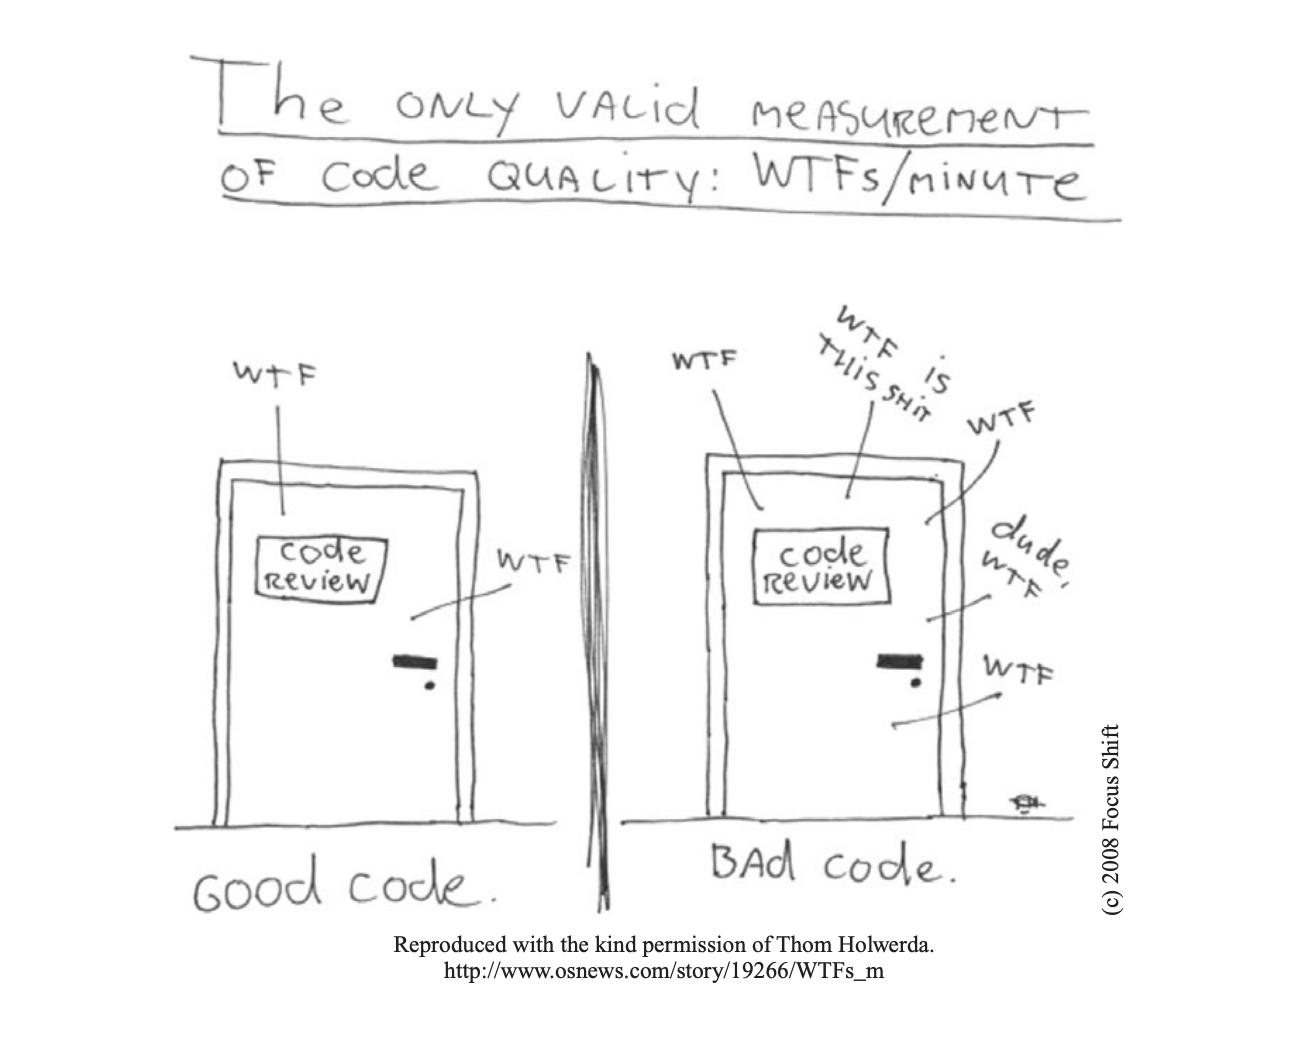 The ONLY VALid MeASUREMENT
OF Code QUALITY: WTFs/MiNUTE
WTF
code
REVieW
WTF
GOOD code.
WTF
WTF iS
THiS SHiT
WTF
code
REVieW
dude,
WTF
WTF
BAd code.
(c) 2008 Focus Shift
Reproduced with the kind permission of Thom Holwerda.
http://www.osnews.com/story/19266/WTFs_m